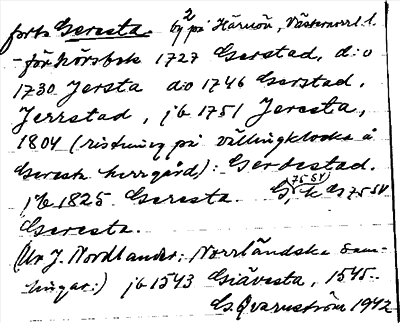 forts Geresta. by på Härnön, Västernorrl. l.
2
-förhörsbok 1727 Gerstad, d:o
1730 Jersta d:o 1746 Gerstad,
Jerrstad, jb 1751 Jeresta,
1804 (ristning på vällingklocka å
Geresta herrgård): Gerdestad.
jb 1825 Geresta. G, k G 75 SV
75 SV)
Geresta.
(Ur J. Nordlander: Norrländska Sam-
lingar:) jb 1543 Giävesta, 1545.
G. Qvarnström 1942